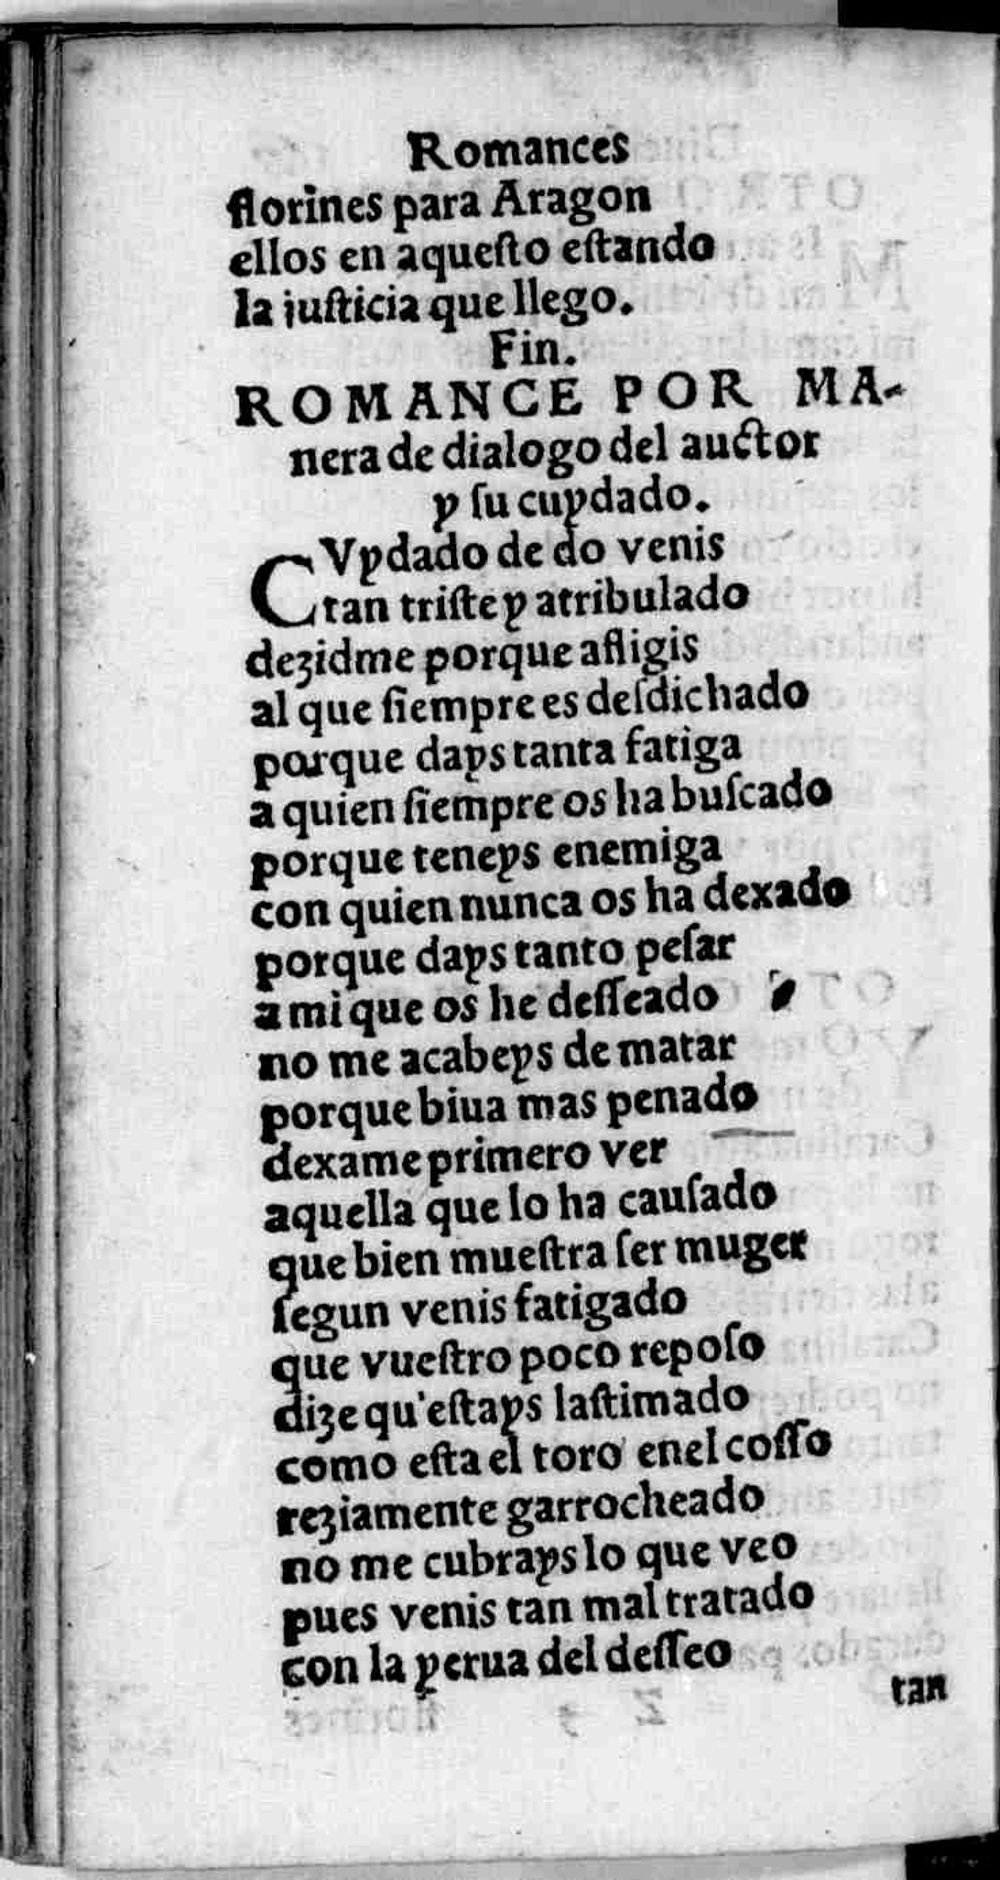 Romances
florines para Aragon
ellos en aqueſto eſtando
la iuſticia que llego.
Fin.
ROMANCE POR MA-
nera de dialogo del auctor
y ſu cuydado.
CVydado de do venis
tan triſte y atribulado
dezidme porque afligis
al que ſiempre es deſdichado
porque days tanta fatiga
a quien ſiempre os ha buſcado
porque teneys enemiga
con quien nunca os ha dexado
porque days tanto peſar
a mi que os he deſſeado
no me acabeys de matar
porque biua mas penado
dexame primero ver
aquella que lo ha cauſado
que bien mueſtra ſer muger
ſegun venis fatigado
que vueſtro poco repoſo
dize qu'eſtays laſtimado
como eſta el toro enel coſſo
reziamente garrocheado
no me cubrays lo que veo
pues venis tan mal tratado
con la yerua del deſſeo
tan